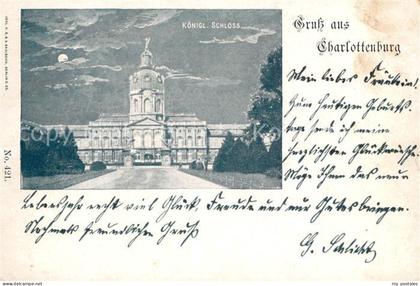 KÖNIGL. SCHLOSS
Gruß aus
Charlottenburg
Mein liebes Fräulein!
Zum heutigen Geburts-
tage sende ich meine
herzlichsten Glückwünsche.
Möge Ihnen das neue
Lebensjahr recht viel Glück, Freude und nur Gutes bringen.
Nochmals freundlichen Gruß
G.
No. 421.